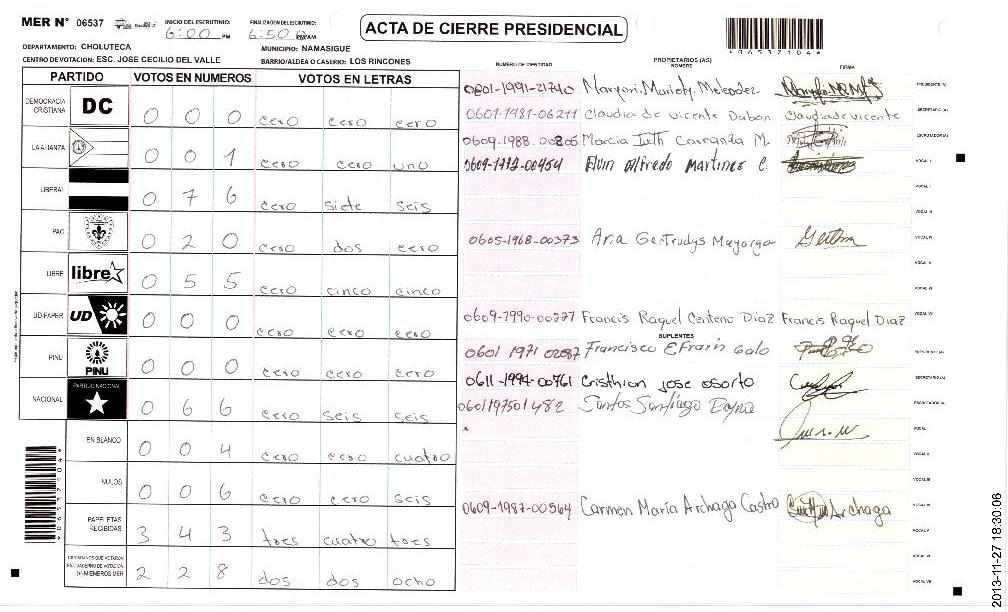 MER N° 06537
INICIO DEL ESCRUTINIO: FINALIZACION ESCRUTINIO:
6:00 PM 6:50 PM/AM
ACTA DE CIERRE PRESIDENCIAL
*06537104*
DEPARTAMENTO: CHOLUTECA MUNICIPIO: NAMASIGUE
CENTRO DE VOTACION: ESC. JOSE CECILIO DEL VALLE BARRIO/ALDEA O CASERIO: LOS RINCONES
NUMERO DE IDENTIDAD PROPIETARIOS (AS) NOMBRE FIRMA
PARTIDO VOTOS EN NUMEROS VOTOS EN LETRAS
DEMOCRACIA CRISTIANA DC 0 0 0 cero cero cero
LA ALIANZA 0 0 1 cero cero uno
LIBERAL 0 7 6 cero siete seis
PAC 0 2 0 cero dos cero
LIBRE libre 0 5 5 cero cinco cinco
UD-FAPER UD 0 0 0 cero cero cero
PINU PINU 0 0 0 cero cero cero
NACIONAL PARTIDO NACIONAL 0 6 6 cero seis seis
EN BLANCO 0 0 4 cero cero cuatro
NULOS 0 0 6 cero cero seis
PAPELETAS RECIBIDAS 3 4 3 tres cuatro tres
CIUDADANOS QUE VOTARON EN CUADERNO DE VOTACION (+) MIEMBROS MER 2 2 8 dos dos ocho
0601-1991-21740 Maryori Melendez PRESIDENTE (A)
0601-1981-06211 Claudia de Vicente Dabon Claudia de vicente SECRETARIO (A)
0609-1988-00206 Marcia Carranza M. ESCRUTADOR (A)
Elvin Alfredo Martinez C. VOCAL I
0605-1968-00373 Ana Gertrudys Mayorga
0609-1990-00227 Francis Raquel Centeno Diaz Francis Raquel Diaz
SUPLENTES
0601 1971 02087 Francisco EFrain Galo
0611-1994-00761 Cristhian jose osorto SECRETARIO (A)
0601197501482 Santos Santiago ESCRUTADOR (A)
0609-1987-00564 Carmen María Archaga Castro Archaga
2013-11-27 18:30:06